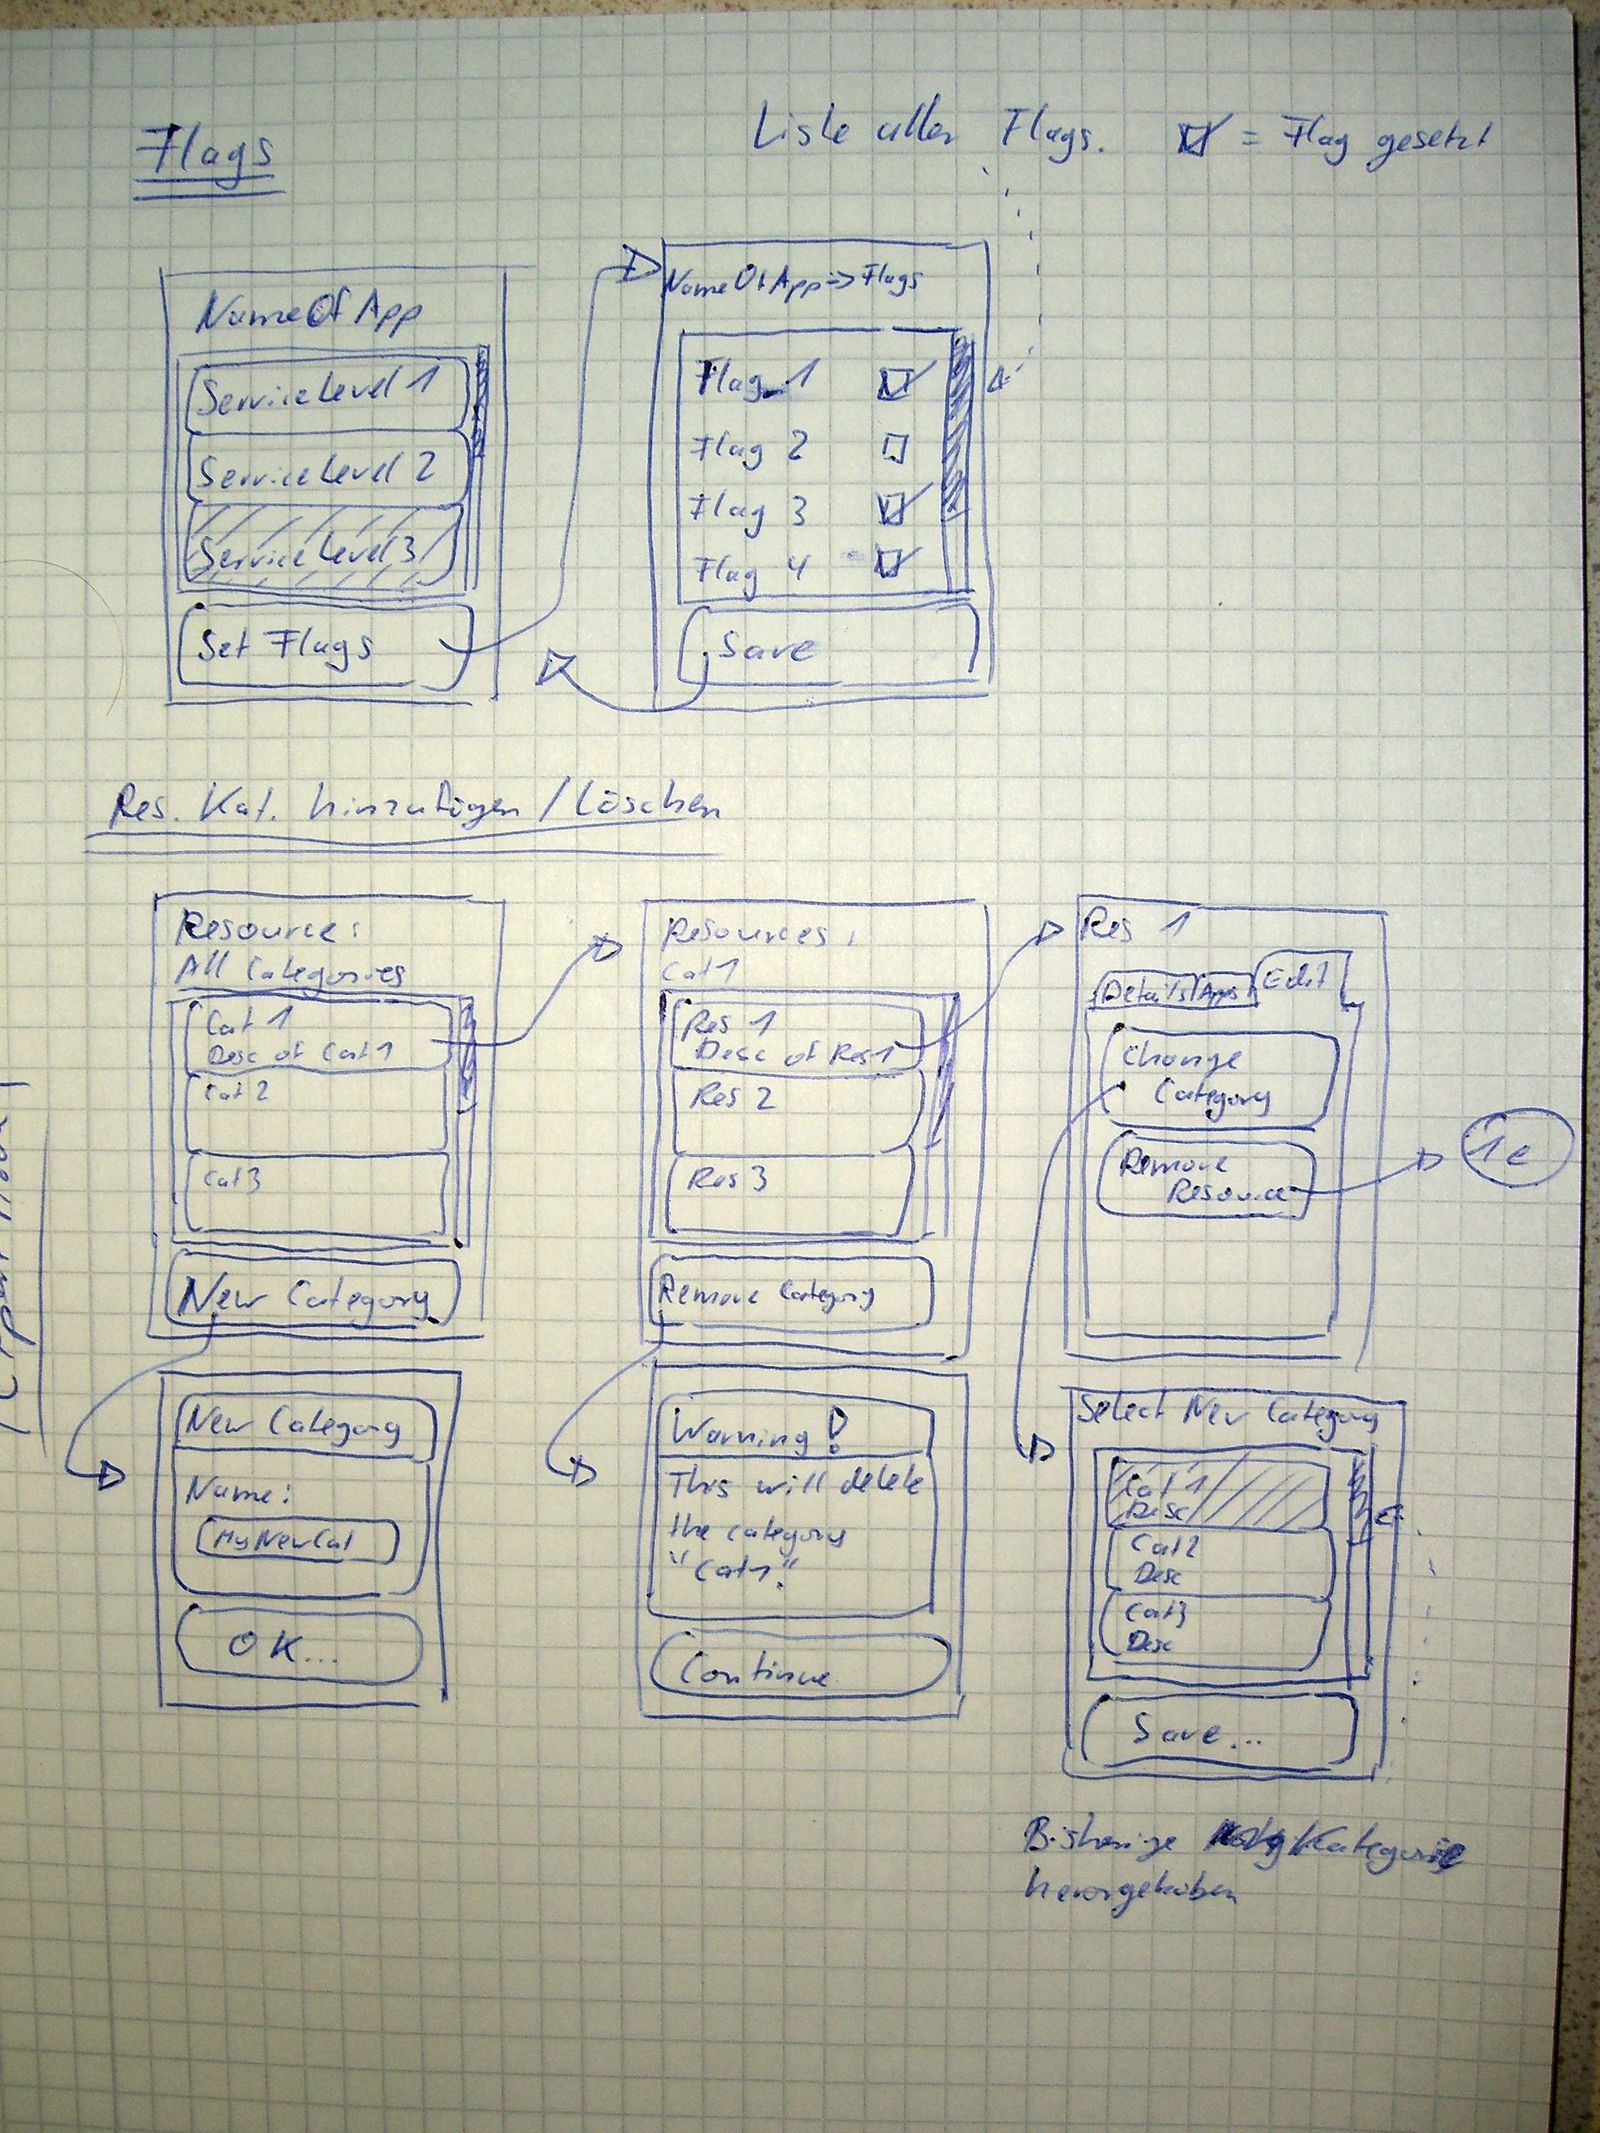 Flags
Liste aller Flags. ☑ = Flag gesetzt
NameOfApp
ServiceLevel 1
ServiceLevel 2
ServiceLevel 3
Set Flags
NameOfApp=>Flags
Flag 1 ☑
Flag 2 ☐
Flag 3 ☑
Flag 4 ☑
Save
Res. Kat. hinzufügen / Löschen
Resource:
All Categories
Cat 1
Desc of Cat 1
Cat 2
Cat 3
New Category
Resources:
Cat 1
Res 1
Desc of Res 1
Res 2
Res 3
Remove Category
Res 1
Details Apps Edit
Change
Category
Remove
Resource
1e
New Category
Name:
MyNewCat
OK...
Warning!
This will delete
the category
"Cat1."
Continue
Select New Category
Cat 1
Desc
Cat 2
Desc
Cat 3
Desc
Save...
Bisherige Kategorie
hervorgehoben